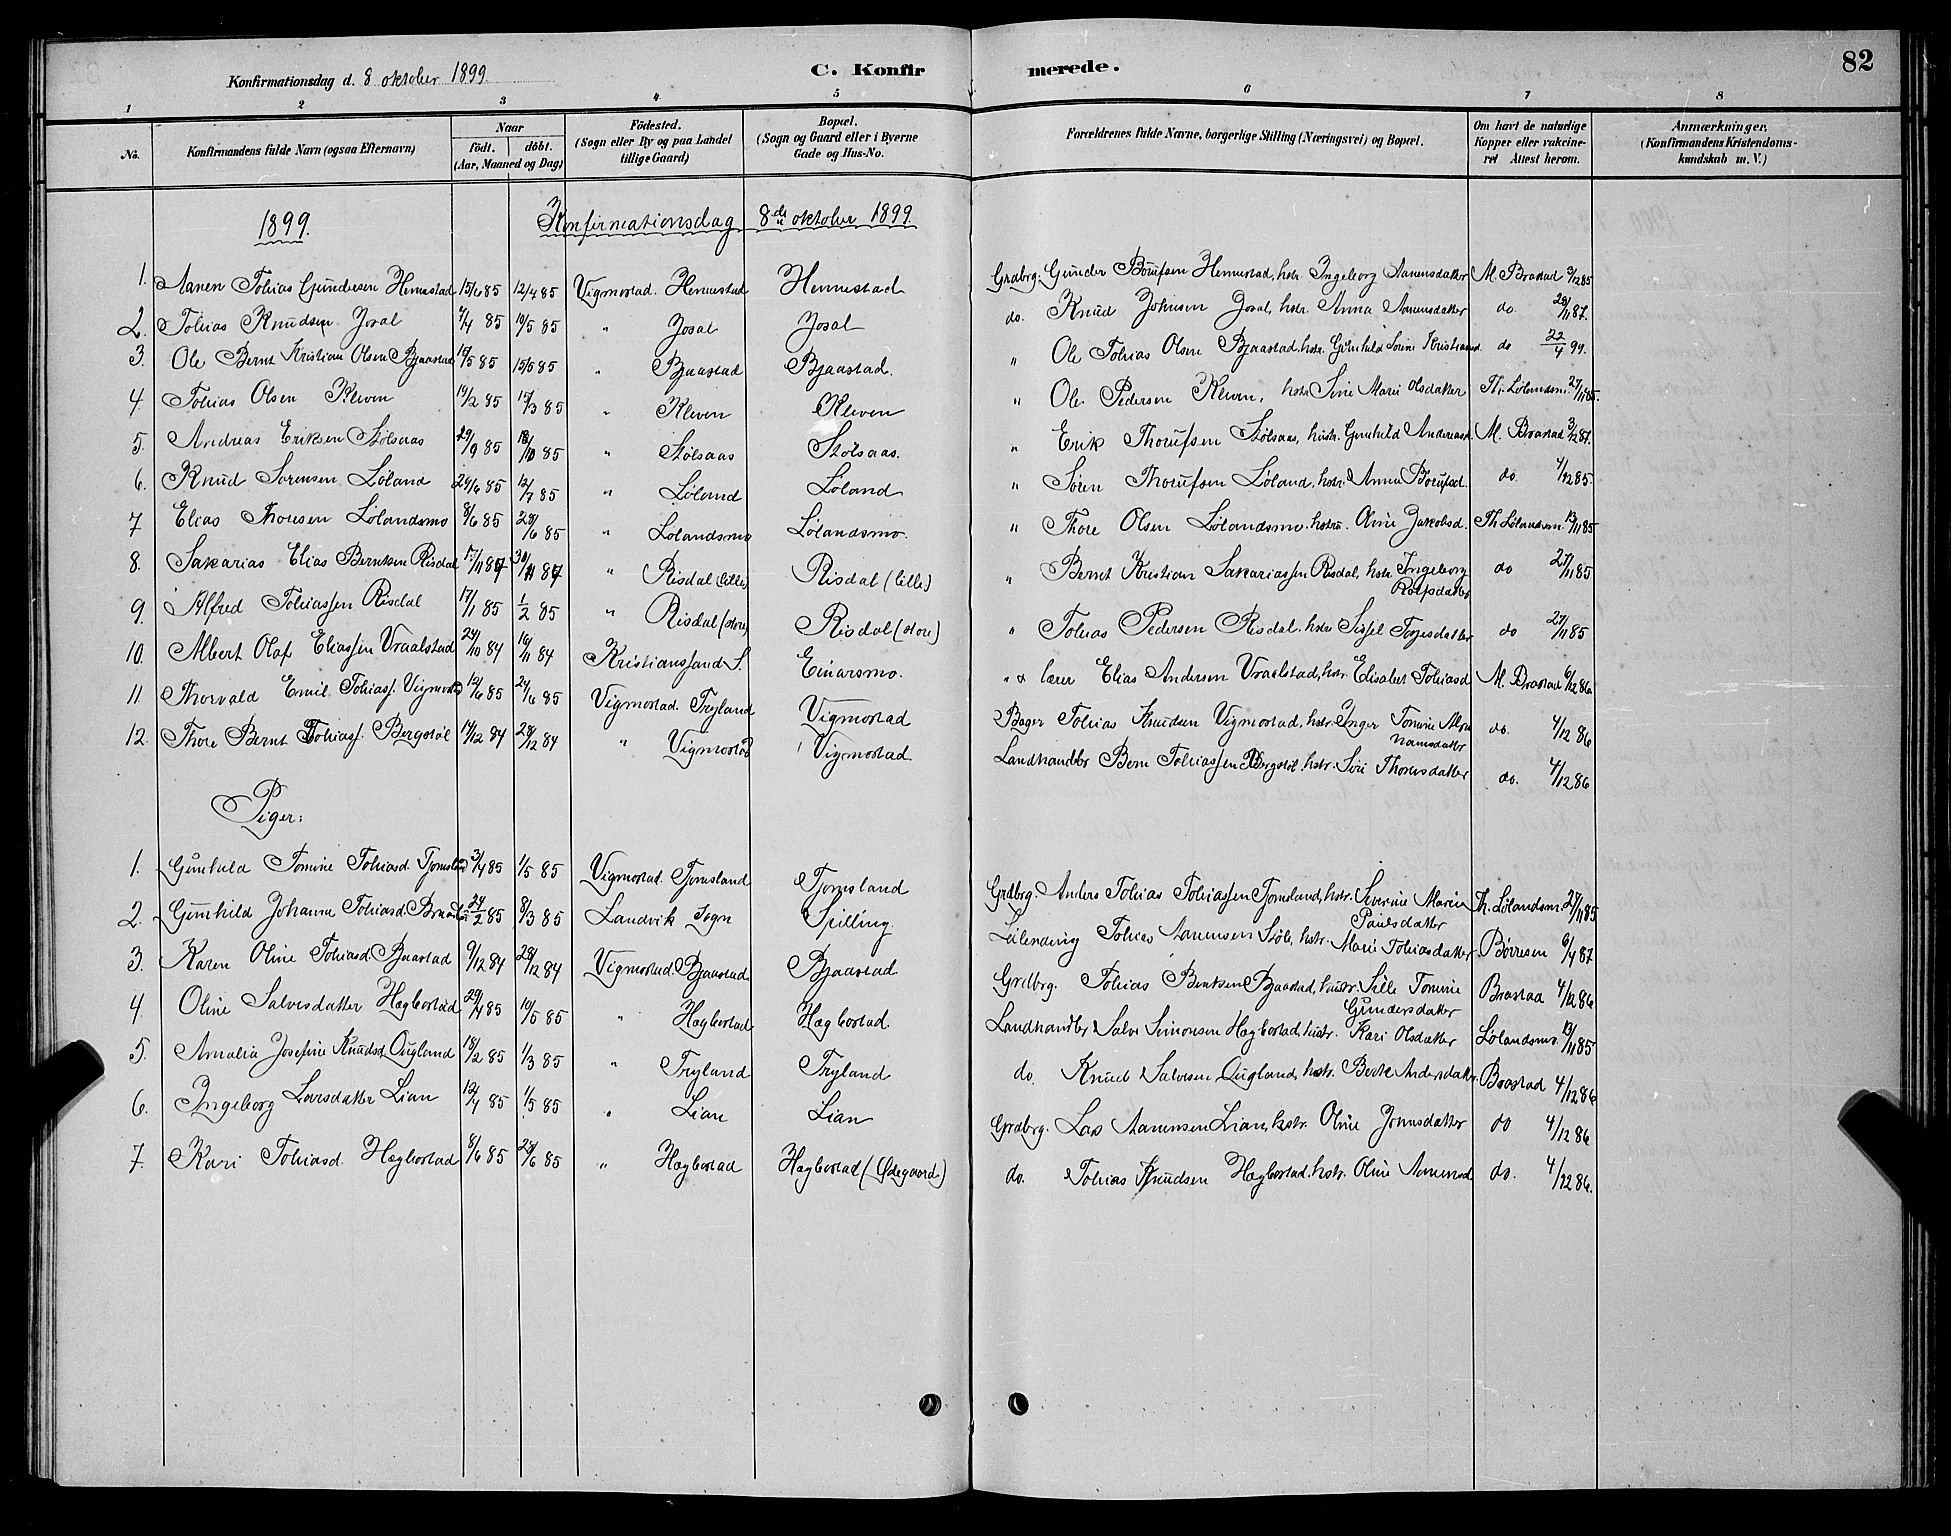 82
Konfirmationsdag d. 8 oktober 1899
C. Konfirmerede.
1 2 3 4 5 6 7 8
No. Konfirmandens fulde Navn (ogsaa Efternavn) Naar födt. döbt. (Aar, Maaned og Dag) Födested. (Sogn eller By og paa Landet tillige Gaard) Bopæl. (Sogn og Gaard eller i Byerne Gade og Hus-No. Forældrenes fulde Navne, borgerlige Stilling (Næringsvei) og Bopæl. Om havt de naturlige Kopper eller vakcineret Attest herom. Anmærkninger. (Konfirmandens Kristendomskundskab m. V.)
1899. Konfirmationsdag 8de oktober 1899.
1. Aanen Tobias Gundersen Hennestad 15/6 85 12/4 85 Vigmostad. Hennestad Hennestad Grdbrg: Gunder Boufsen Hennestad, hstr. Ingeborg Aanensdatter M. Brastad 3/12 85
2. Tobias Knudsen Josal 7/4 85 10/5 85 " Josal Josal do. Knud Johnsen Josal, hstr. Anna Aanensdatter do. 28/11 87.
3. Ole Bernt Kristian Olsen Bjaastad 19/5 85 15/6 85 " Bjaastad Bjaastad. " Ole Tobias Olsen Bjaastad. hstr. Gunhild Sorine Kristiansd. do 22/4 99.
4. Tobias Olsen Kleven 19/2 85 15/3 85 " Kleven Kleven " Ole Pedersen Kleven, hstr Sine Marie Olsdatter Th. Lølandsm. 27/11 85.
5. Andreas Eriksen Stølsaas 29/9 85 18/10 85 " Stølsaas Stølsaas. " Erik Thorufsen Stølsaas, hustr. Gunhild Andreasd. M. Brastad 3/12 87.
6. Knud Sørensen Løland 24/6 85 12/7 85 " Løland Løland " Søren Thorufsen Løland, hstr. Anna Borufsd. do. 4/12 85.
7 Elias Thoresen Lølandsmo 8/6 85 28/6 85 " Lølandsmo Lølandsmo. " Thore Olsen Lølandsmo. hstru. Oline Jakobsd. Th. Lølandsm. 13/11 85
8. Sakarias Elias Berntsen Risdal 17/11 84 30/11 84 " Risdal (lille) Risdal (lille) " Bernt Kristian Sakariassen Risdal, hstr. Ingeborg Rolfsdatter do 27/11 85
9. Alfred Tobiassen Risdal 17/1 85 1/2 85 " Risdal (store) Risdal (store) " Tobias Pedersen Risdal. hstr Sissel Torjesdatter do 27/11 85
10. Albert Olaf Eliassen Vraalstad 24/10 84 16/11 84 Kristianssand S. Einarsmo. " & lærer Elias Andersen Vraalstad, hstr. Elisabet Tobiasd M. Brastad 6/12 86
11 Thorvald Emil Tobiass. Vigmostad 12/6 85 24/6 85 Vigmostad. Tryland Vigmostad Bager Tobias Knudsen Vigmostad, hstr. Inger Tomine namsdatter do. 4/12 86
12. Thore Bernt Tobiass. Bergstøl 14/12 84 28/12 84 " Vigmostad Vigmostad Landhandler Bern Tobiassen Bergstøl. hstr. Siri Thoresdatter do. 4/12 86
Piger:
1. Gunhild Tomine Tobiasd. Tjomsland 3/4 85 1/5 85 Vigmostad. Tjomsland Tjomsland Grdbrg. Anders Tobias Tobiassen Tjomsland, hstr. Severine Marie Paulsdatter Th. Lølandsm. 27/11 85
2. Gunhild Johanne Tobiasd. 24/2 85 8/3 85 Landvik Sogn Spilling. Leilending Tobias Aanensen Støle, hstr. Marie Tobiasdatter Børresen 6/4 87
3. Karen Oline Tobiasd. Bjaastad 9/12 84 28/12 84 Vigmostad. Bjaastad Bjaastad Grdbrg. Tobias Berntsen Bjaastad, hustr. Sille Tomine Gundersdatter Brastad 4/12 86
4. Oline Salvesdatter Hægbostad 29/4 85 10/5 85 " Hægbostad Hægbostad. Landhandler Salve Simonsen Hægbostad, hustr. Kari Olsdatter Lølandsmo. 13/11 85
5. Amalia Josefine Knudsd. Ougland 18/2 85 1/3 85 " Tryland Tryland do. Knud Salvesen Ougland, hstr. Berte Andersdatter. Brastad 4/12 86
6. Ingeborg Larsdatter Lian 12/4 85 1/5 85 " Lian Lian Grdbrg. Lars Aanensen Lian, hstr. Oline Jonnsdatter do 4/12 86
7. Kari Tobiasd. Hægbostad 8/6 85 28/6 85 " Hægbostad Hægbostad (Ødegaard) do. Tobias Knudsen Hægbostad. hstr. Oline Aanensd. do. 4/12 86.